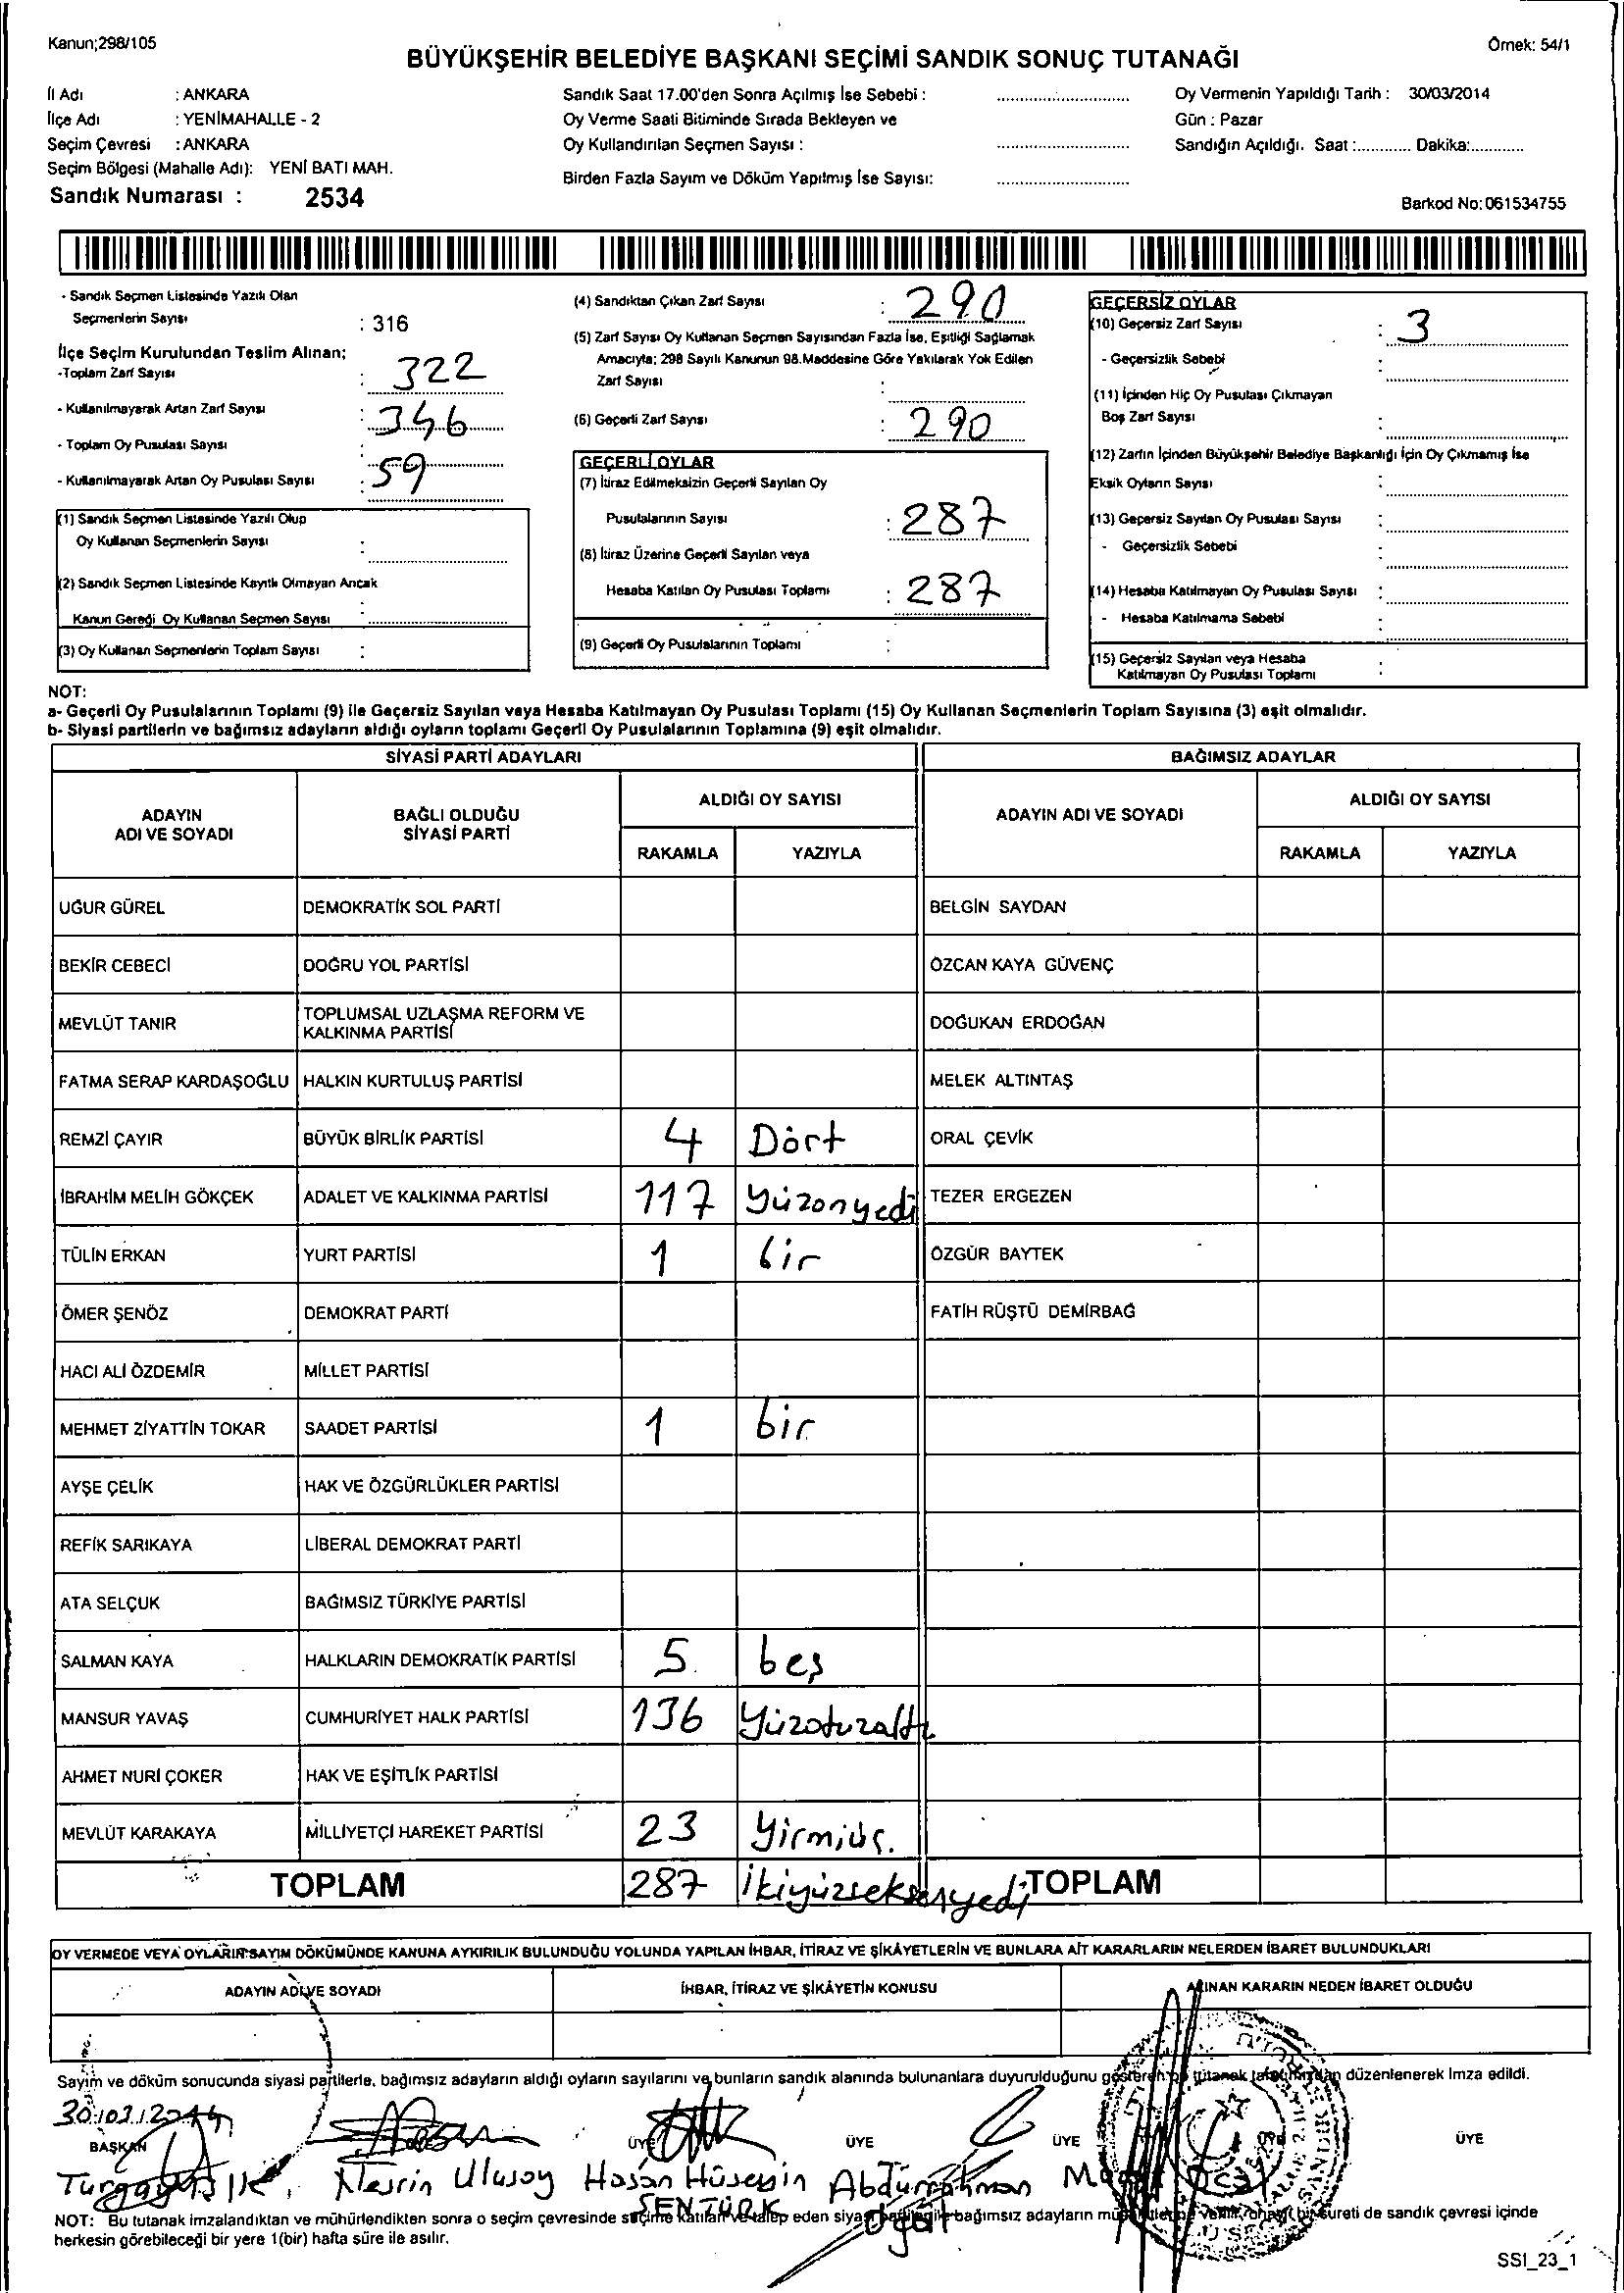 Kanun;298/105
Örnek: 54/1
BÜYÜKŞEHİR BELEDİYE BAŞKANI SEÇİMİ SANDIK SONUÇ TUTANAĞI
İl Adı : ANKARA
İlçe Adı : YENİMAHALLE - 2
Seçim Çevresi : ANKARA
Seçim Bölgesi (Mahalle Adı): YENİ BATI MAH.
Sandık Numarası : 2534
Sandık Saat 17.00'den Sonra Açılmış İse Sebebi :
Oy Verme Saati Bitiminde Sırada Bekleyen ve
Oy Kullandırılan Seçmen Sayısı :
Birden Fazla Sayım ve Döküm Yapılmış İse Sayısı:
Oy Vermenin Yapıldığı Tarih : 30/03/2014
Gün : Pazar
Sandığın Açıldığı. Saat :............ Dakika:............
Barkod No:061534755
- Sandık Seçmen Listesinde Yazılı Olan
Seçmenlerin Sayısı : 316
İlçe Seçim Kurulundan Teslim Alınan;
-Toplam Zarf Sayısı : 322
- Kullanılmayarak Artan Zarf Sayısı :
- Toplam Oy Pusulası Sayısı : 346
- Kullanılmayarak Artan Oy Pusulası Sayısı : 59
(1) Sandık Seçmen Listesinde Yazılı Olup
Oy Kullanan Seçmenlerin Sayısı :
(2) Sandık Seçmen Listesinde Kayıtlı Olmayan Ancak
Kanun Gereği Oy Kullanan Seçmen Sayısı :
(3) Oy Kullanan Seçmenlerin Toplam Sayısı :
(4) Sandıktan Çıkan Zarf Sayısı : 290
(5) Zarf Sayısı Oy Kullanan Seçmen Sayısından Fazla İse, Eşitliği Sağlamak
Amacıyla; 298 Sayılı Kanunun 98.Maddesine Göre Yakılarak Yok Edilen
Zarf Sayısı :
(6) Geçerli Zarf Sayısı : 290
GEÇERLİ OYLAR
(7) İtiraz Edilmeksizin Geçerli Sayılan Oy
Pusulalarının Sayısı : 287
(8) İtiraz Üzerine Geçerli Sayılan veya
Hesaba Katılan Oy Pusulası Toplamı : 287
(9) Geçerli Oy Pusulalarının Toplamı :
GEÇERSİZ OYLAR
(10) Geçersiz Zarf Sayısı : 3
- Geçersizlik Sebebi :
(11) İçinden Hiç Oy Pusulası Çıkmayan
Boş Zarf Sayısı :
(12) Zarfın İçinden Büyükşehir Belediye Başkanlığı İçin Oy Çıkmamış İse
Eksik Oyların Sayısı :
(13) Geçersiz Sayılan Oy Pusulası Sayısı :
- Geçersizlik Sebebi :
(14) Hesaba Katılmayan Oy Pusulası Sayısı :
- Hesaba Katılmama Sebebi :
(15) Geçersiz Sayılan veya Hesaba
Katılmayan Oy Pusulası Toplamı :
NOT:
a- Geçerli Oy Pusulalarının Toplamı (9) ile Geçersiz Sayılan veya Hesaba Katılmayan Oy Pusulası Toplamı (15) Oy Kullanan Seçmenlerin Toplam Sayısına (3) eşit olmalıdır.
b- Siyasi partilerin ve bağımsız adayların aldığı oyların toplamı Geçerli Oy Pusulalarının Toplamına (9) eşit olmalıdır.
SİYASİ PARTİ ADAYLARI BAĞIMSIZ ADAYLAR
ADAYIN ADI VE SOYADI BAĞLI OLDUĞU SİYASİ PARTİ ALDIĞI OY SAYISI ADAYIN ADI VE SOYADI ALDIĞI OY SAYISI
RAKAMLA YAZIYLA RAKAMLA YAZIYLA
UĞUR GÜREL DEMOKRATİK SOL PARTİ BELGİN SAYDAN
BEKİR CEBECİ DOĞRU YOL PARTİSİ ÖZCAN KAYA GÜVENÇ
MEVLÜT TANIR TOPLUMSAL UZLAŞMA REFORM VE KALKINMA PARTİSİ DOĞUKAN ERDOĞAN
FATMA SERAP KARDAŞOĞLU HALKIN KURTULUŞ PARTİSİ MELEK ALTINTAŞ
REMZİ ÇAYIR BÜYÜK BİRLİK PARTİSİ 4 Dört ORAL ÇEVİK
İBRAHİM MELİH GÖKÇEK ADALET VE KALKINMA PARTİSİ 117 Yüzonyedi TEZER ERGEZEN
TÜLİN ERKAN YURT PARTİSİ 1 bir ÖZGÜR BAYTEK
ÖMER ŞENÖZ DEMOKRAT PARTİ FATİH RÜŞTÜ DEMİRBAĞ
HACI ALİ ÖZDEMİR MİLLET PARTİSİ
MEHMET ZİYATTİN TOKAR SAADET PARTİSİ 1 bir
AYŞE ÇELİK HAK VE ÖZGÜRLÜKLER PARTİSİ
REFİK SARIKAYA LİBERAL DEMOKRAT PARTİ
ATA SELÇUK BAĞIMSIZ TÜRKİYE PARTİSİ
SALMAN KAYA HALKLARIN DEMOKRATİK PARTİSİ 5 beş
MANSUR YAVAŞ CUMHURİYET HALK PARTİSİ 136 Yüzotuzaltı
AHMET NURİ ÇOKER HAK VE EŞİTLİK PARTİSİ
MEVLÜT KARAKAYA MİLLİYETÇİ HAREKET PARTİSİ 23 Yirmiüç.
TOPLAM 287 İkiyüzseksenyedi TOPLAM
OY VERMEDE VEYA OYLARIN SAYIM DÖKÜMÜNDE KANUNA AYKIRILIK BULUNDUĞU YOLUNDA YAPILAN İHBAR, İTİRAZ VE ŞİKÂYETLERİN VE BUNLARA AİT KARARLARIN NELERDEN İBARET BULUNDUKLARI
ADAYIN ADI VE SOYADI İHBAR, İTİRAZ VE ŞİKÂYETİN KONUSU ALINAN KARARIN NEDEN İBARET OLDUĞU
Sayım ve döküm sonucunda siyasi partilerle, bağımsız adayların aldığı oyların sayılarını ve bunların sandık alanında bulunanlara duyurulduğunu gösteren bu tutanak tarafımızdan düzenlenerek imza edildi.
30/03/2014
BAŞKAN ÜYE ÜYE ÜYE ÜYE ÜYE
Nesrin Ulusoy Hasan Hüseyin Abdurrahman
ŞENTÜRK
NOT: Bu tutanak imzalandıktan ve mühürlendikten sonra o seçim çevresinde seçime katılan ve talep eden siyasi bağımsız adayların sureti de sandık çevresi içinde
herkesin görebileceği bir yere 1(bir) hafta süre ile asılır.
SSI_23_1